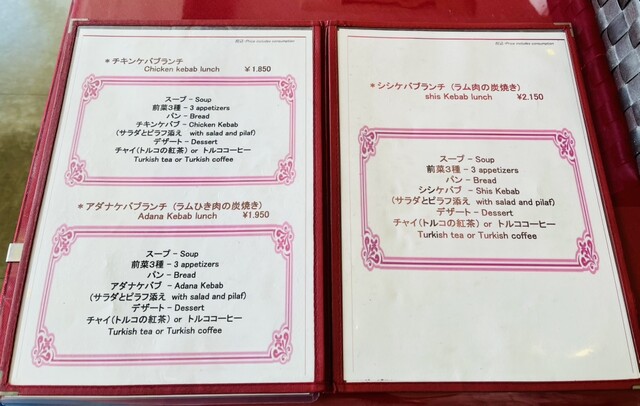 税込-Price includes consumption
＊チキンケバブランチ
Chicken kebab lunch ￥1.850
スープ - Soup
前菜３種 - 3 appetizers
パン - Bread
チキンケバブ - Chicken Kebab
(サラダとピラフ添え with salad and pilaf)
デザート - Dessert
チャイ(トルコの紅茶) or トルココーヒー
Turkish tea or Turkish coffee
＊アダナケバブランチ（ラムひき肉の炭焼き）
Adana Kebab lunch ￥1.950
スープ - Soup
前菜３種 - 3 appetizers
パン - Bread
アダナケバブ - Adana Kebab
(サラダとピラフ添え with salad and pilaf)
デザート - Dessert
チャイ(トルコの紅茶) or トルココーヒー
Turkish tea or Turkish coffee
税込-Price includes consumption
＊シシケバブランチ（ラム肉の炭焼き）
shis Kebab lunch ￥2.150
スープ - Soup
前菜３種 - 3 appetizers
パン - Bread
シシケバブ - Shis Kebab
(サラダとピラフ添え with salad and pilaf)
デザート - Dessert
チャイ(トルコの紅茶) or トルココーヒー
Turkish tea or Turkish coffee